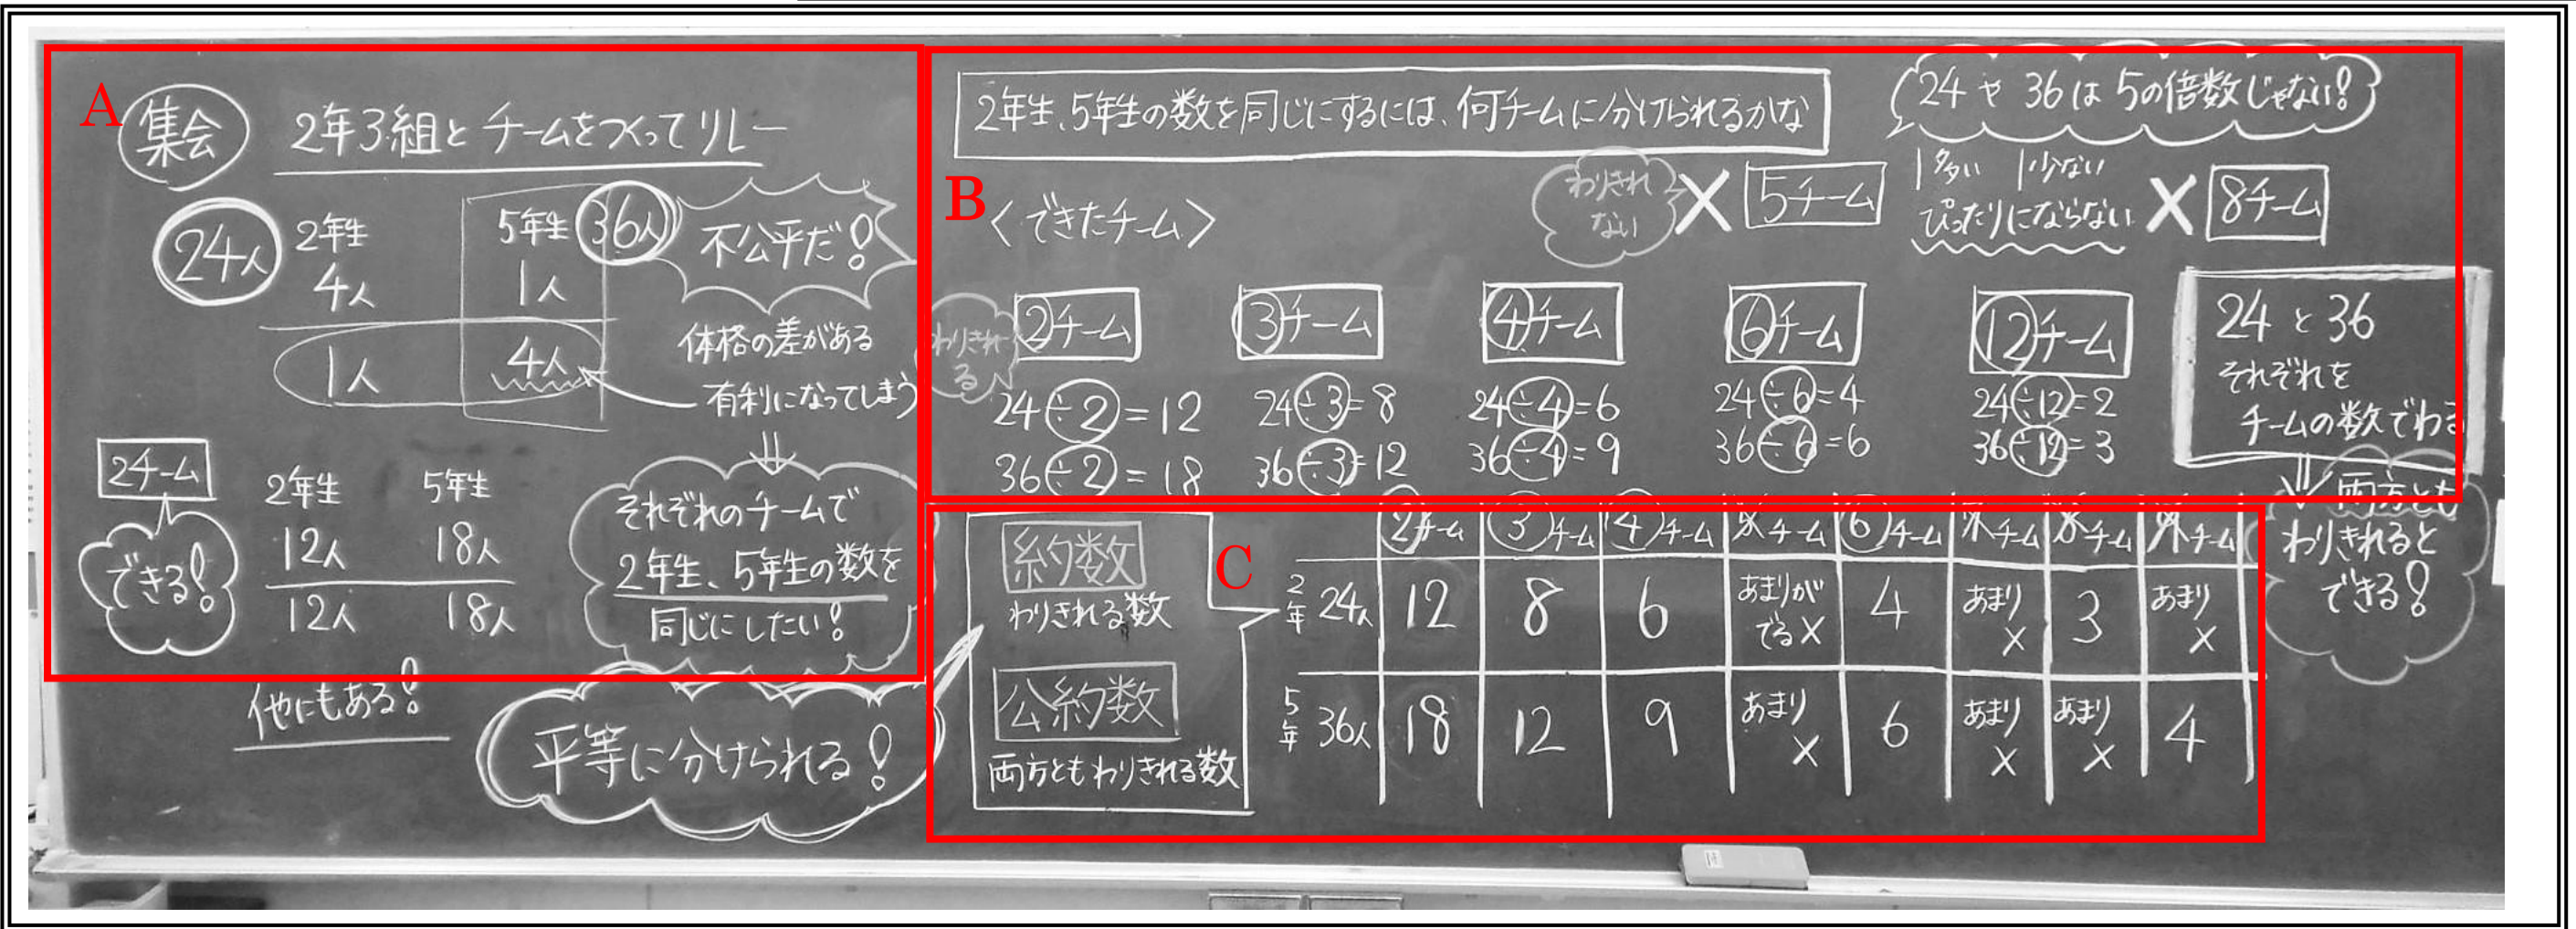 A
集会
2年3組とチームをつくってリレー
24人
2年生
5年生
36人
4人
1人
1人
4人
不公平だ!
体格の差がある
有利になってしまう
2チーム
できる!
2年生
5年生
12人
18人
12人
18人
それぞれのチームで
2年生、5年生の数を
同じにしたい!
他にもある!
平等に分けられる!
B
2年生、5年生の数を同じにするには、何チームに分けられるかな
24や36は5の倍数じゃない!
<できたチーム>
わりきれ
ない
× 5チーム
1多い 1少ない
ぴったりにならない
× 8チーム
わりきれ
る
2チーム
24÷2=12
36÷2=18
3チーム
24÷3=8
36÷3=12
4チーム
24÷4=6
36÷4=9
6チーム
24÷6=4
36÷6=6
12チーム
24÷12=2
36÷12=3
24と36
それぞれを
チームの数でわる
両方とも
わりきれると
できる!
C
約数
わりきれる数
公約数
両方ともわりきれる数
2チーム 3チーム 4チーム チーム 6チーム チーム チーム チーム
2年 24人 12 8 6 あまりがでる× 4 あまり× 3 あまり×
5年 36人 18 12 9 あまり× 6 あまり× あまり× 4